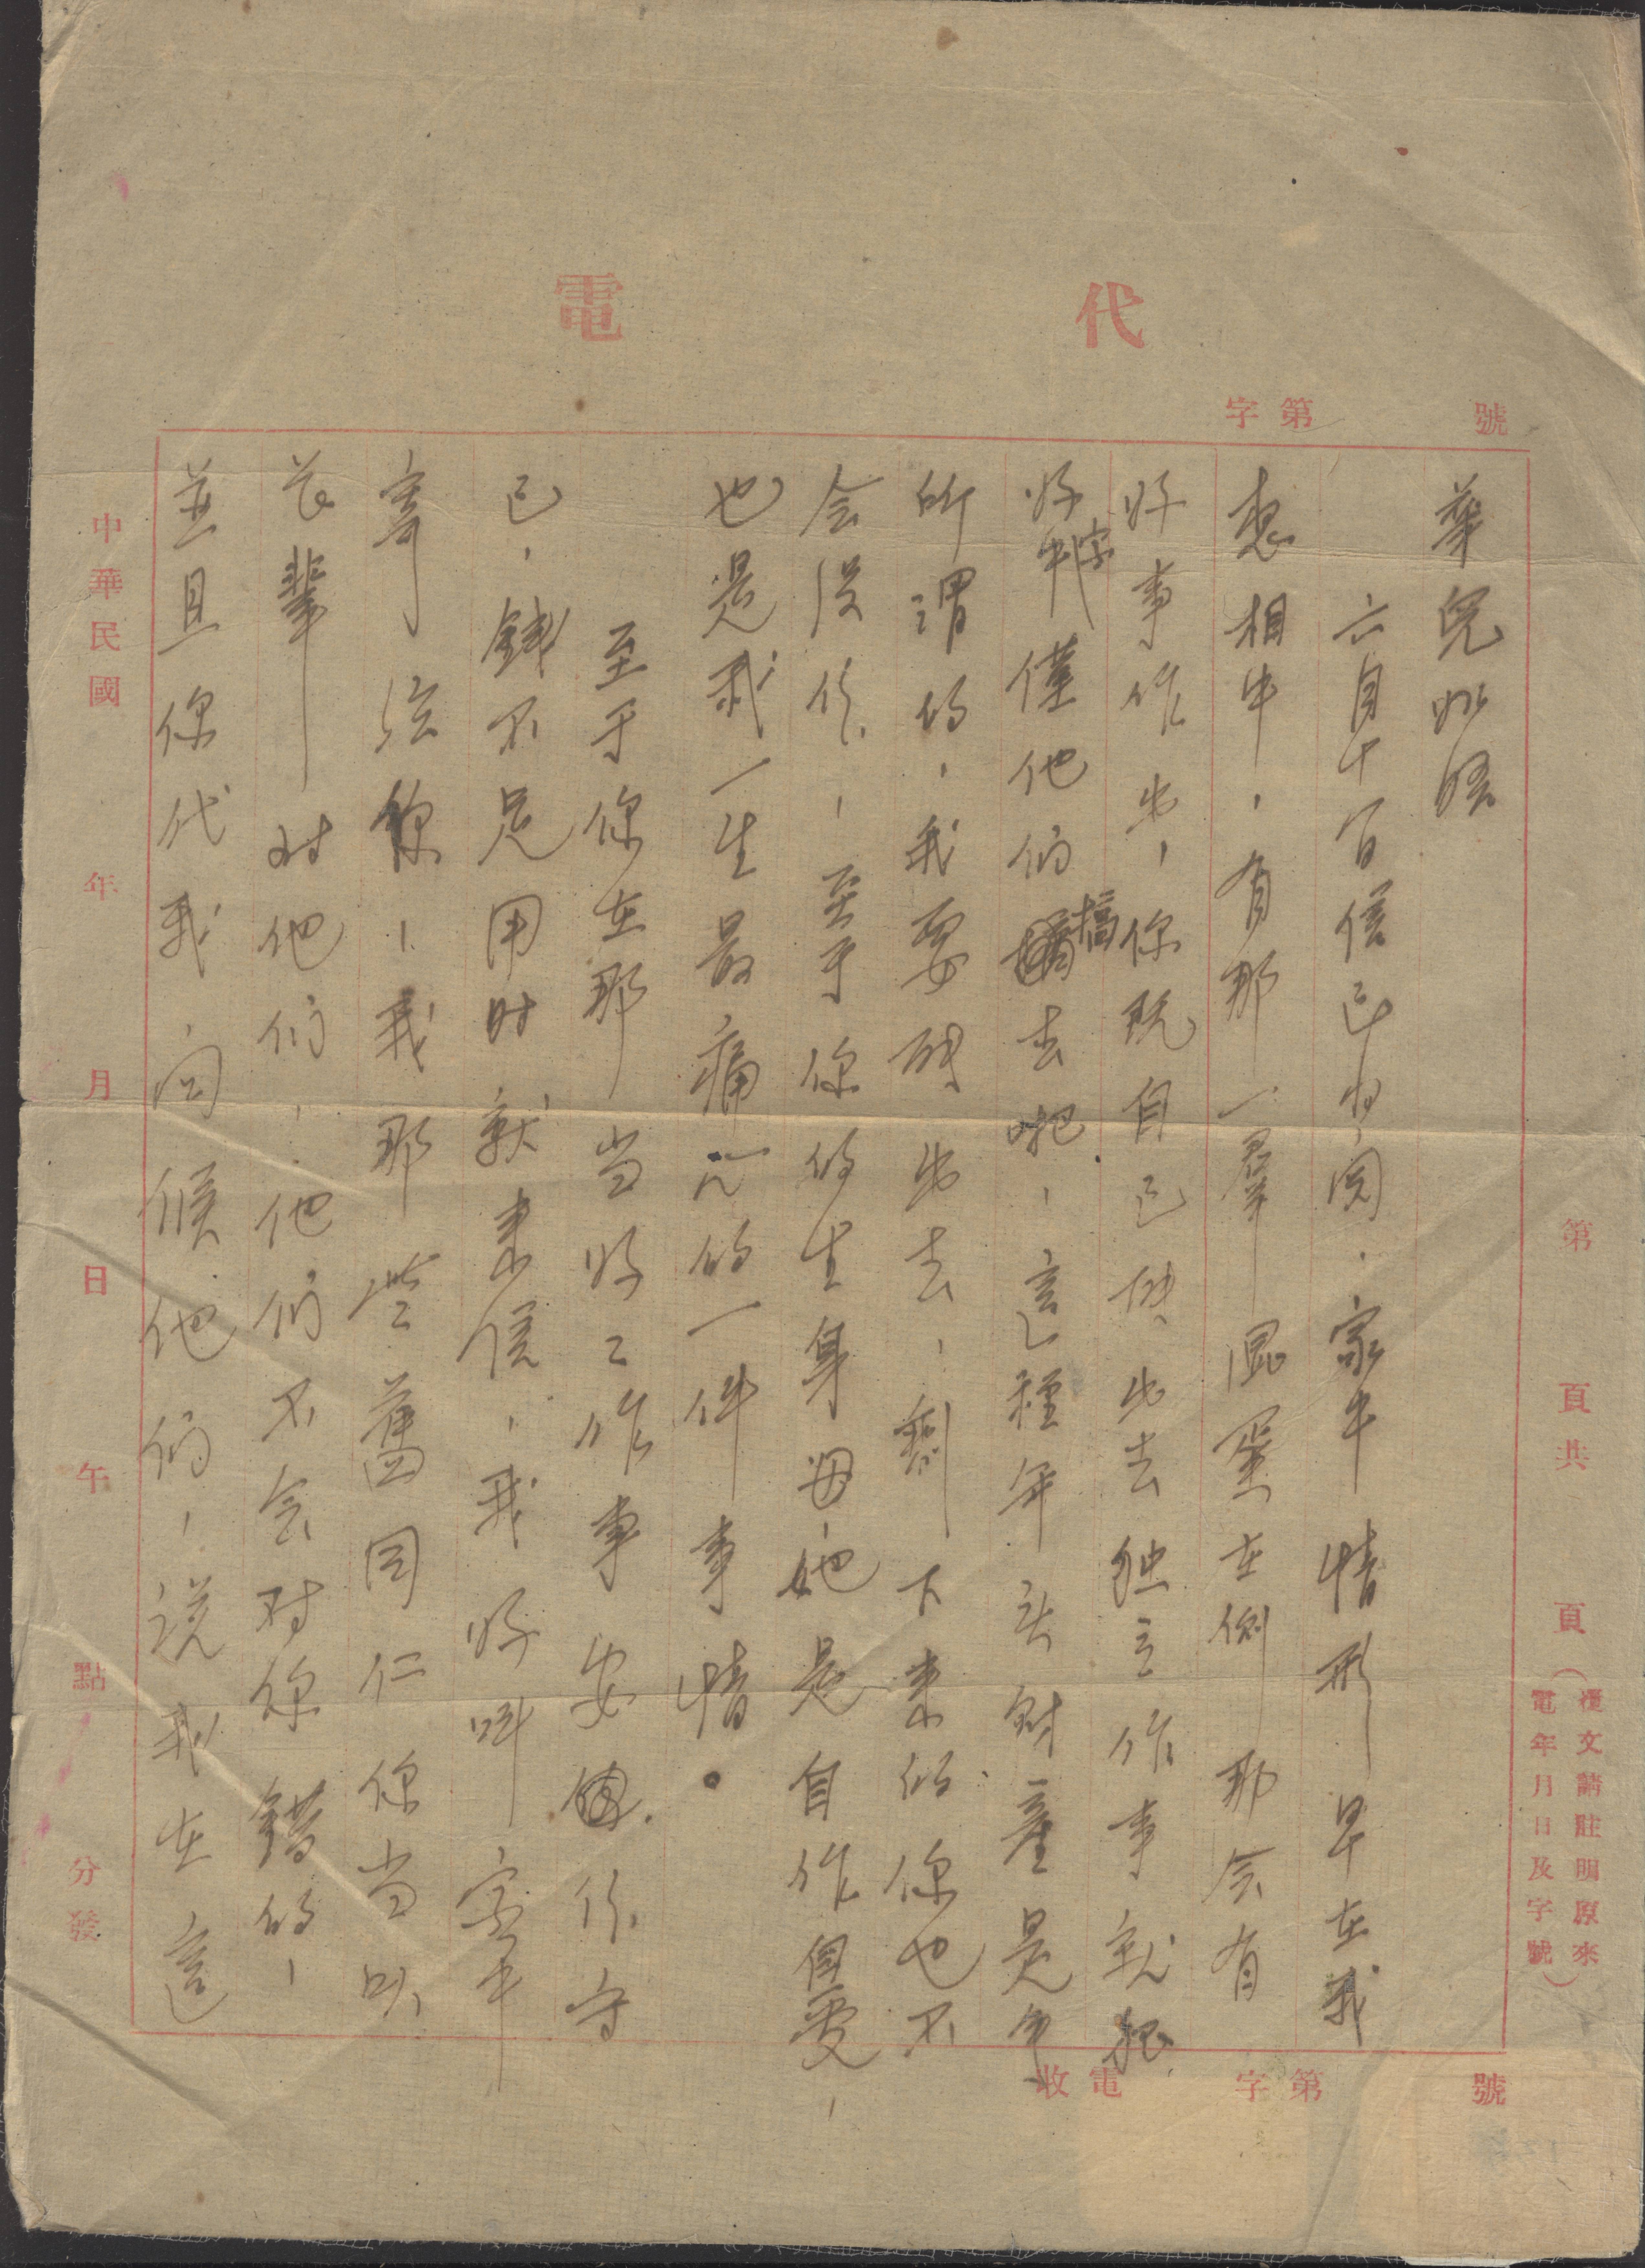 代電
第 字 號
華兒如晤
六月十日信已收閱，家中情形早在我
想相中，有那一羣混蛋在側那会有
好事作出，你既自己供出去独立作事就把
好字僅他们搞去吧，這種年头財產是身
所謂的，我要破出去，剩下来的你也不
会没份，至于你的生身母，她是自作自受，
也是我一生最痛心的一件事情。
至于你在那当好二作事安份守
已，錢不足用时就来信，我好叫家中
寄给你，我那些舊同仁你当以
長輩对他们，他们不会对你錯的，
並且你代我向候他们，說我在這
中華民國 年 月 日 午 點 分發
第 頁共 頁
（覆文請註明原來
電年月日及字號）
收電 字第 號